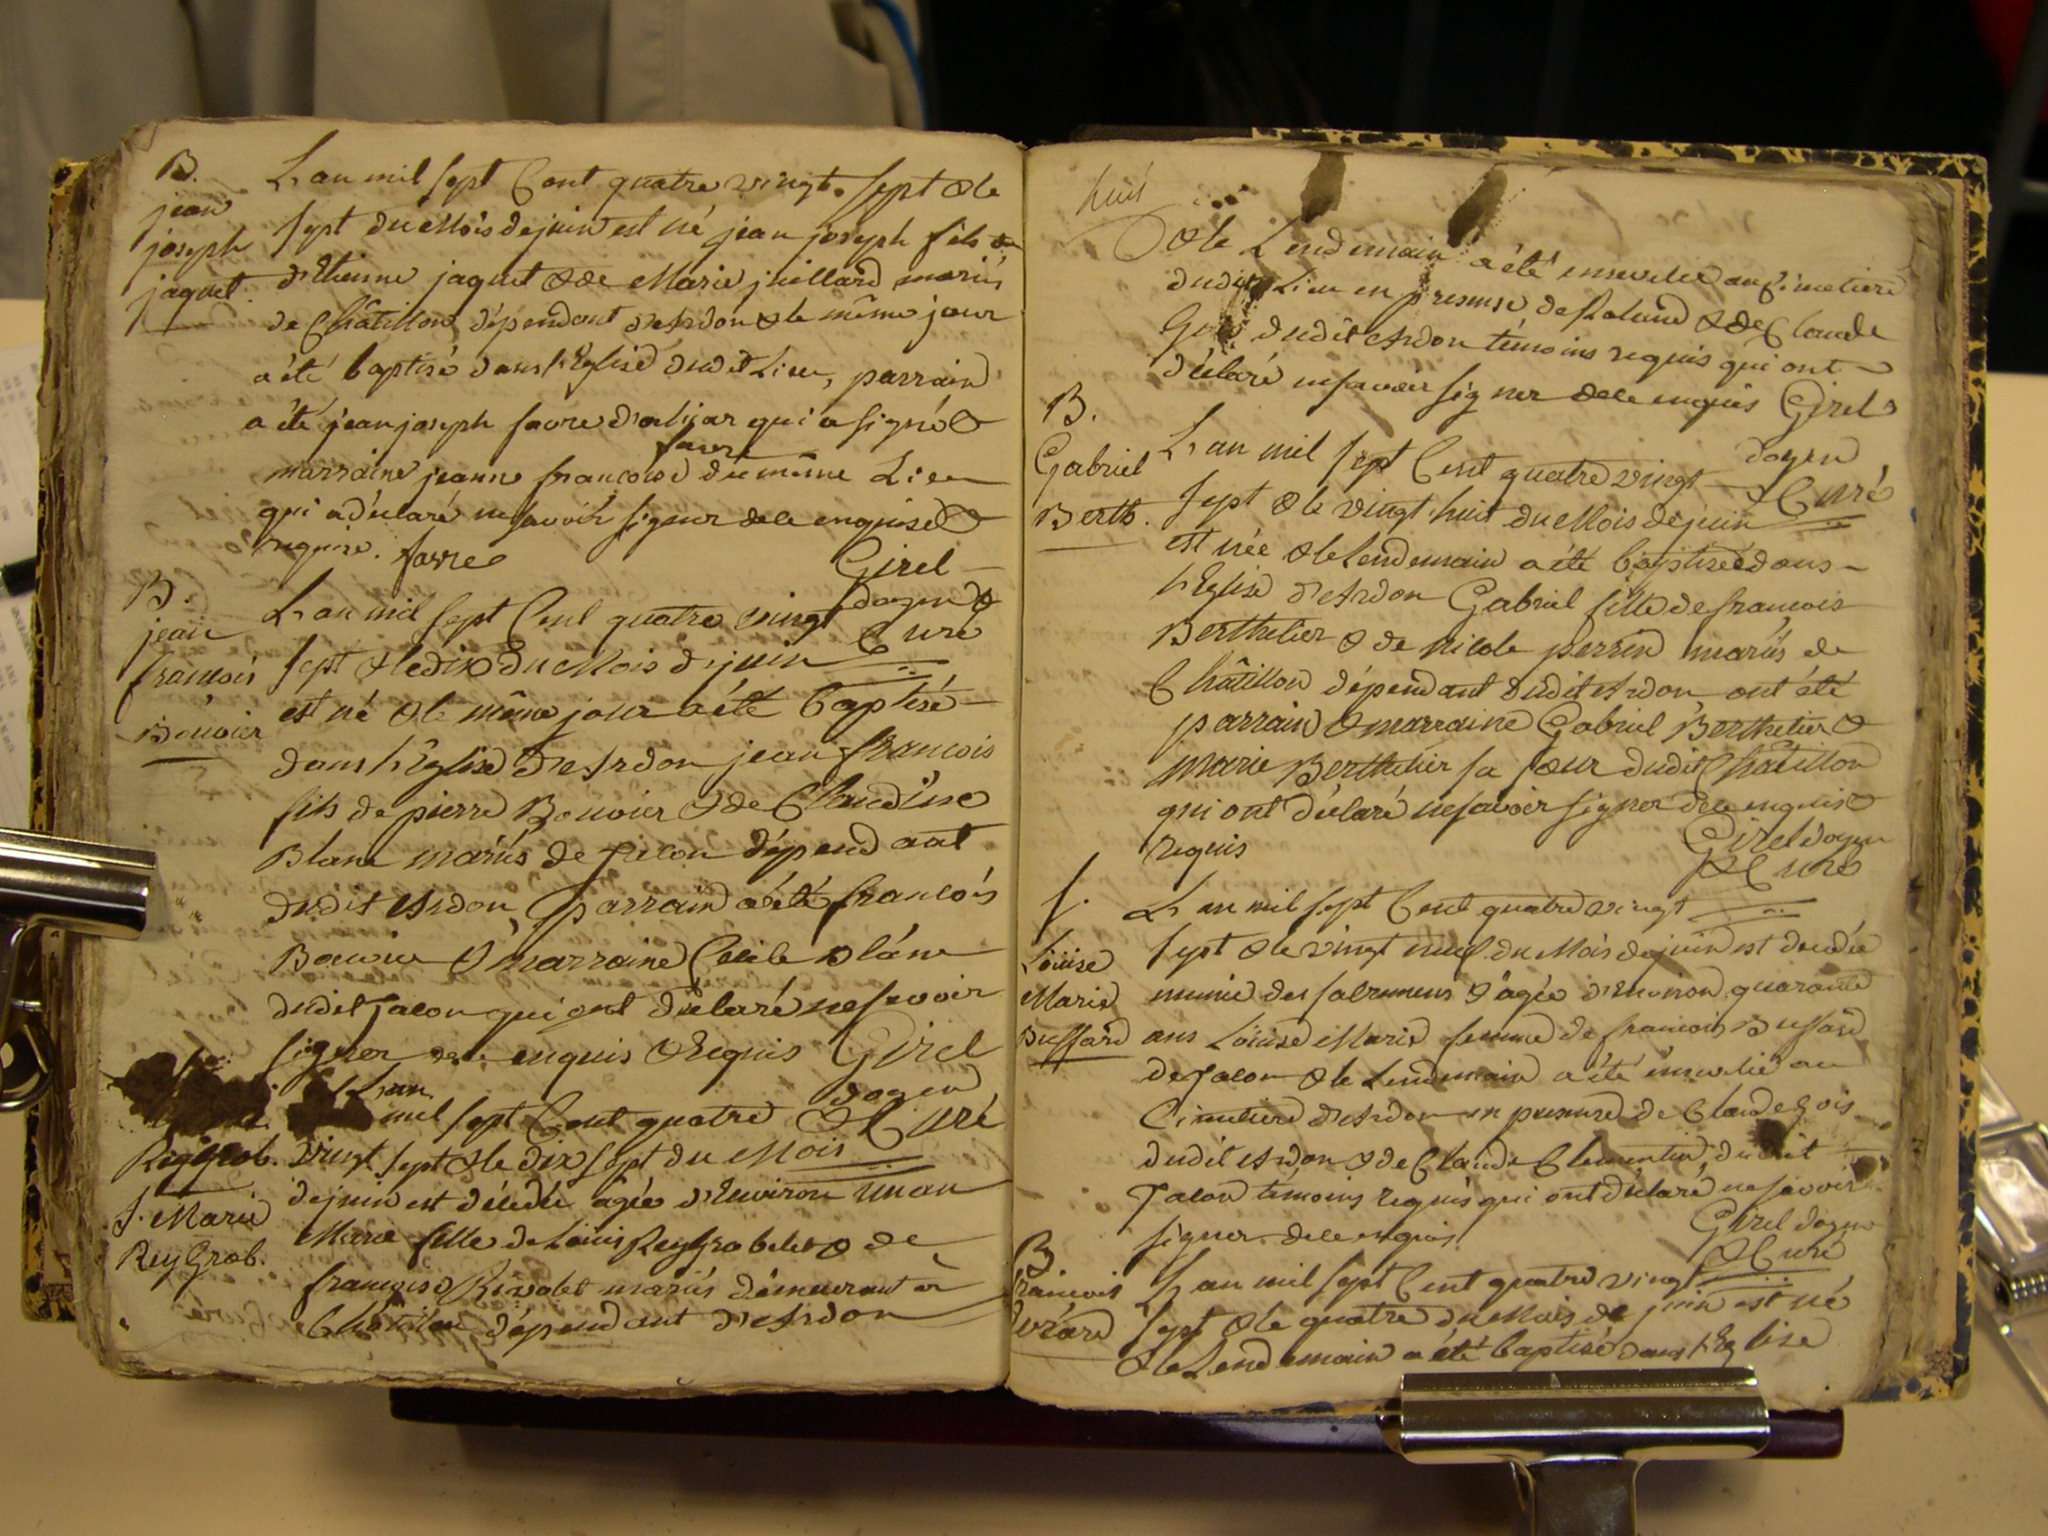 B.
jean
joseph
jaquet.
L'an mil sept Cent quatre vingt sept & le
sept du Mois de juin est né jean joseph fils
d'Etienne jaquet & de Marie juillard mariés
de Châtillon dépendant d'Ardon & le même jour
a été baptisé dans l'Eglise dudit Lieu, parrain
a été jean joseph favre qui a signé &
favre
marraine jeanne francoise du même Lieu
qui a déclaré ne savoir signer de ce enquise &
requise. favre
Girel
doyen &
Curé
B.
jean
francois
Bouvier
L'an mil sept Cent quatre vingt
sept & le dix du Mois de juin
est né & le même jour a été baptisé
dans l'Eglise d'Ardon jean francois
fils de pierre Bouvier & de Claudine
Blanc mariés de jacon dépendant
dudit Ardon, parrain a été francois
Bouvier & marraine Cecile Blanc
dudit jacon qui ont déclaré ne savoir
signer de ce enquis & Requis Girel
doyen
& Curé
Reygrob.
S. Marie
Rey Grob.
L'an
mil sept Cent quatre
vingt sept & le dix sept du Mois
de juin est décédée agée d'Environ un an
Marie fille de Louis Reygrobelet & de
francoise mariés démeurant à
Châtillon dépendant d'Ardon
huit
& le Lendemain a été ensevelie au Cimetiere
dudit Lieu en presense de Roland & de Claude
Gois dudit Ardon témoins requis qui ont
déclaré ne savoir signer de ce enquis Girel
doyen
& Curé
B.
Gabriel
Berth.
L'an mil sept Cent quatre vingt
sept & le vingt huit du Mois de juin
est née & le Lendemain a été baptisée dans
l'Eglise d'Ardon Gabriel fille de francois
Berthelier & de Nicole perrin mariés de
Châtillon dépendant dudit Ardon ont été
parrain & marraine Gabriel Berthelier &
Marie Berthelier sa sœur dudit Châtillon
qui ont déclaré ne savoir signer de ce enquis &
requis
Girel doyen
& Curé
S.
Louise
Marie
Buffard
L'an mil sept Cent quatre vingt
sept & le vingt neuf du Mois de juin est decedée
munie des sacremens & agée d'Environ quarante
ans Louise Marie femme de francois Buffard
de jacon & le Lendemain a été ensevelie au
Cimetiere d'Ardon en presense de Claude Gois
dudit Ardon & de Claude Clementin dudit
jacon témoins requis qui ont déclaré ne savoir
signer de ce enquis
Girel doyen
& Curé
B.
francois
Evrard
L'an mil sept Cent quatre vingt
sept & le quatre du Mois de juin est né
& le Lendemain a été baptisé dans l'Eglise